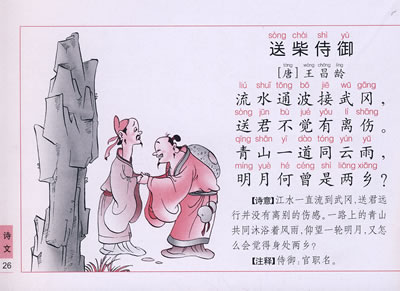 sòng chái shì yù
送柴侍御
táng wáng chāng líng
[唐]王昌龄
liú shuǐ tōng bō jiē wǔ gāng
流水通波接武冈，
sòng jūn bù jué yǒu lí shāng
送君不觉有离伤。
qīng shān yí dào tóng yún yǔ
青山一道同云雨，
míng yuè hé céng shì liǎng xiāng
明月何曾是两乡？
【诗意】江水一直流到武冈，送君远
行并没有离别的伤感。一路上的青山
共同沐浴着风雨，仰望一轮明月，又怎
么会觉得身处两乡？
【注释】侍御：官职名。
诗文
26